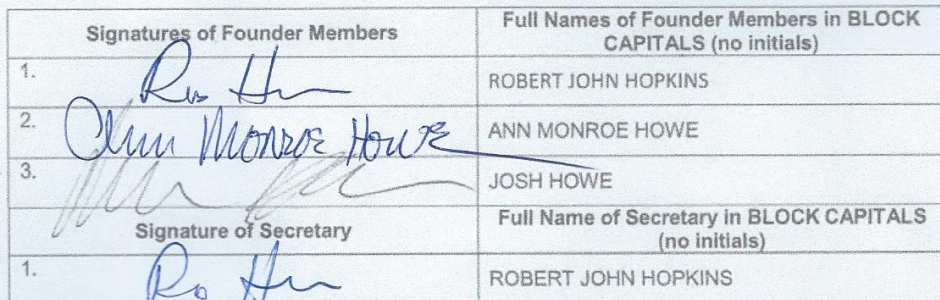 Signatures of Founder Members
Full Names of Founder Members in BLOCK
CAPITALS (no initials)
1.
ROBERT JOHN HOPKINS
2. Ann Monroe Howe
ANN MONROE HOWE
3.
JOSH HOWE
Signature of Secretary
Full Name of Secretary in BLOCK CAPITALS
(no initials)
1.
ROBERT JOHN HOPKINS